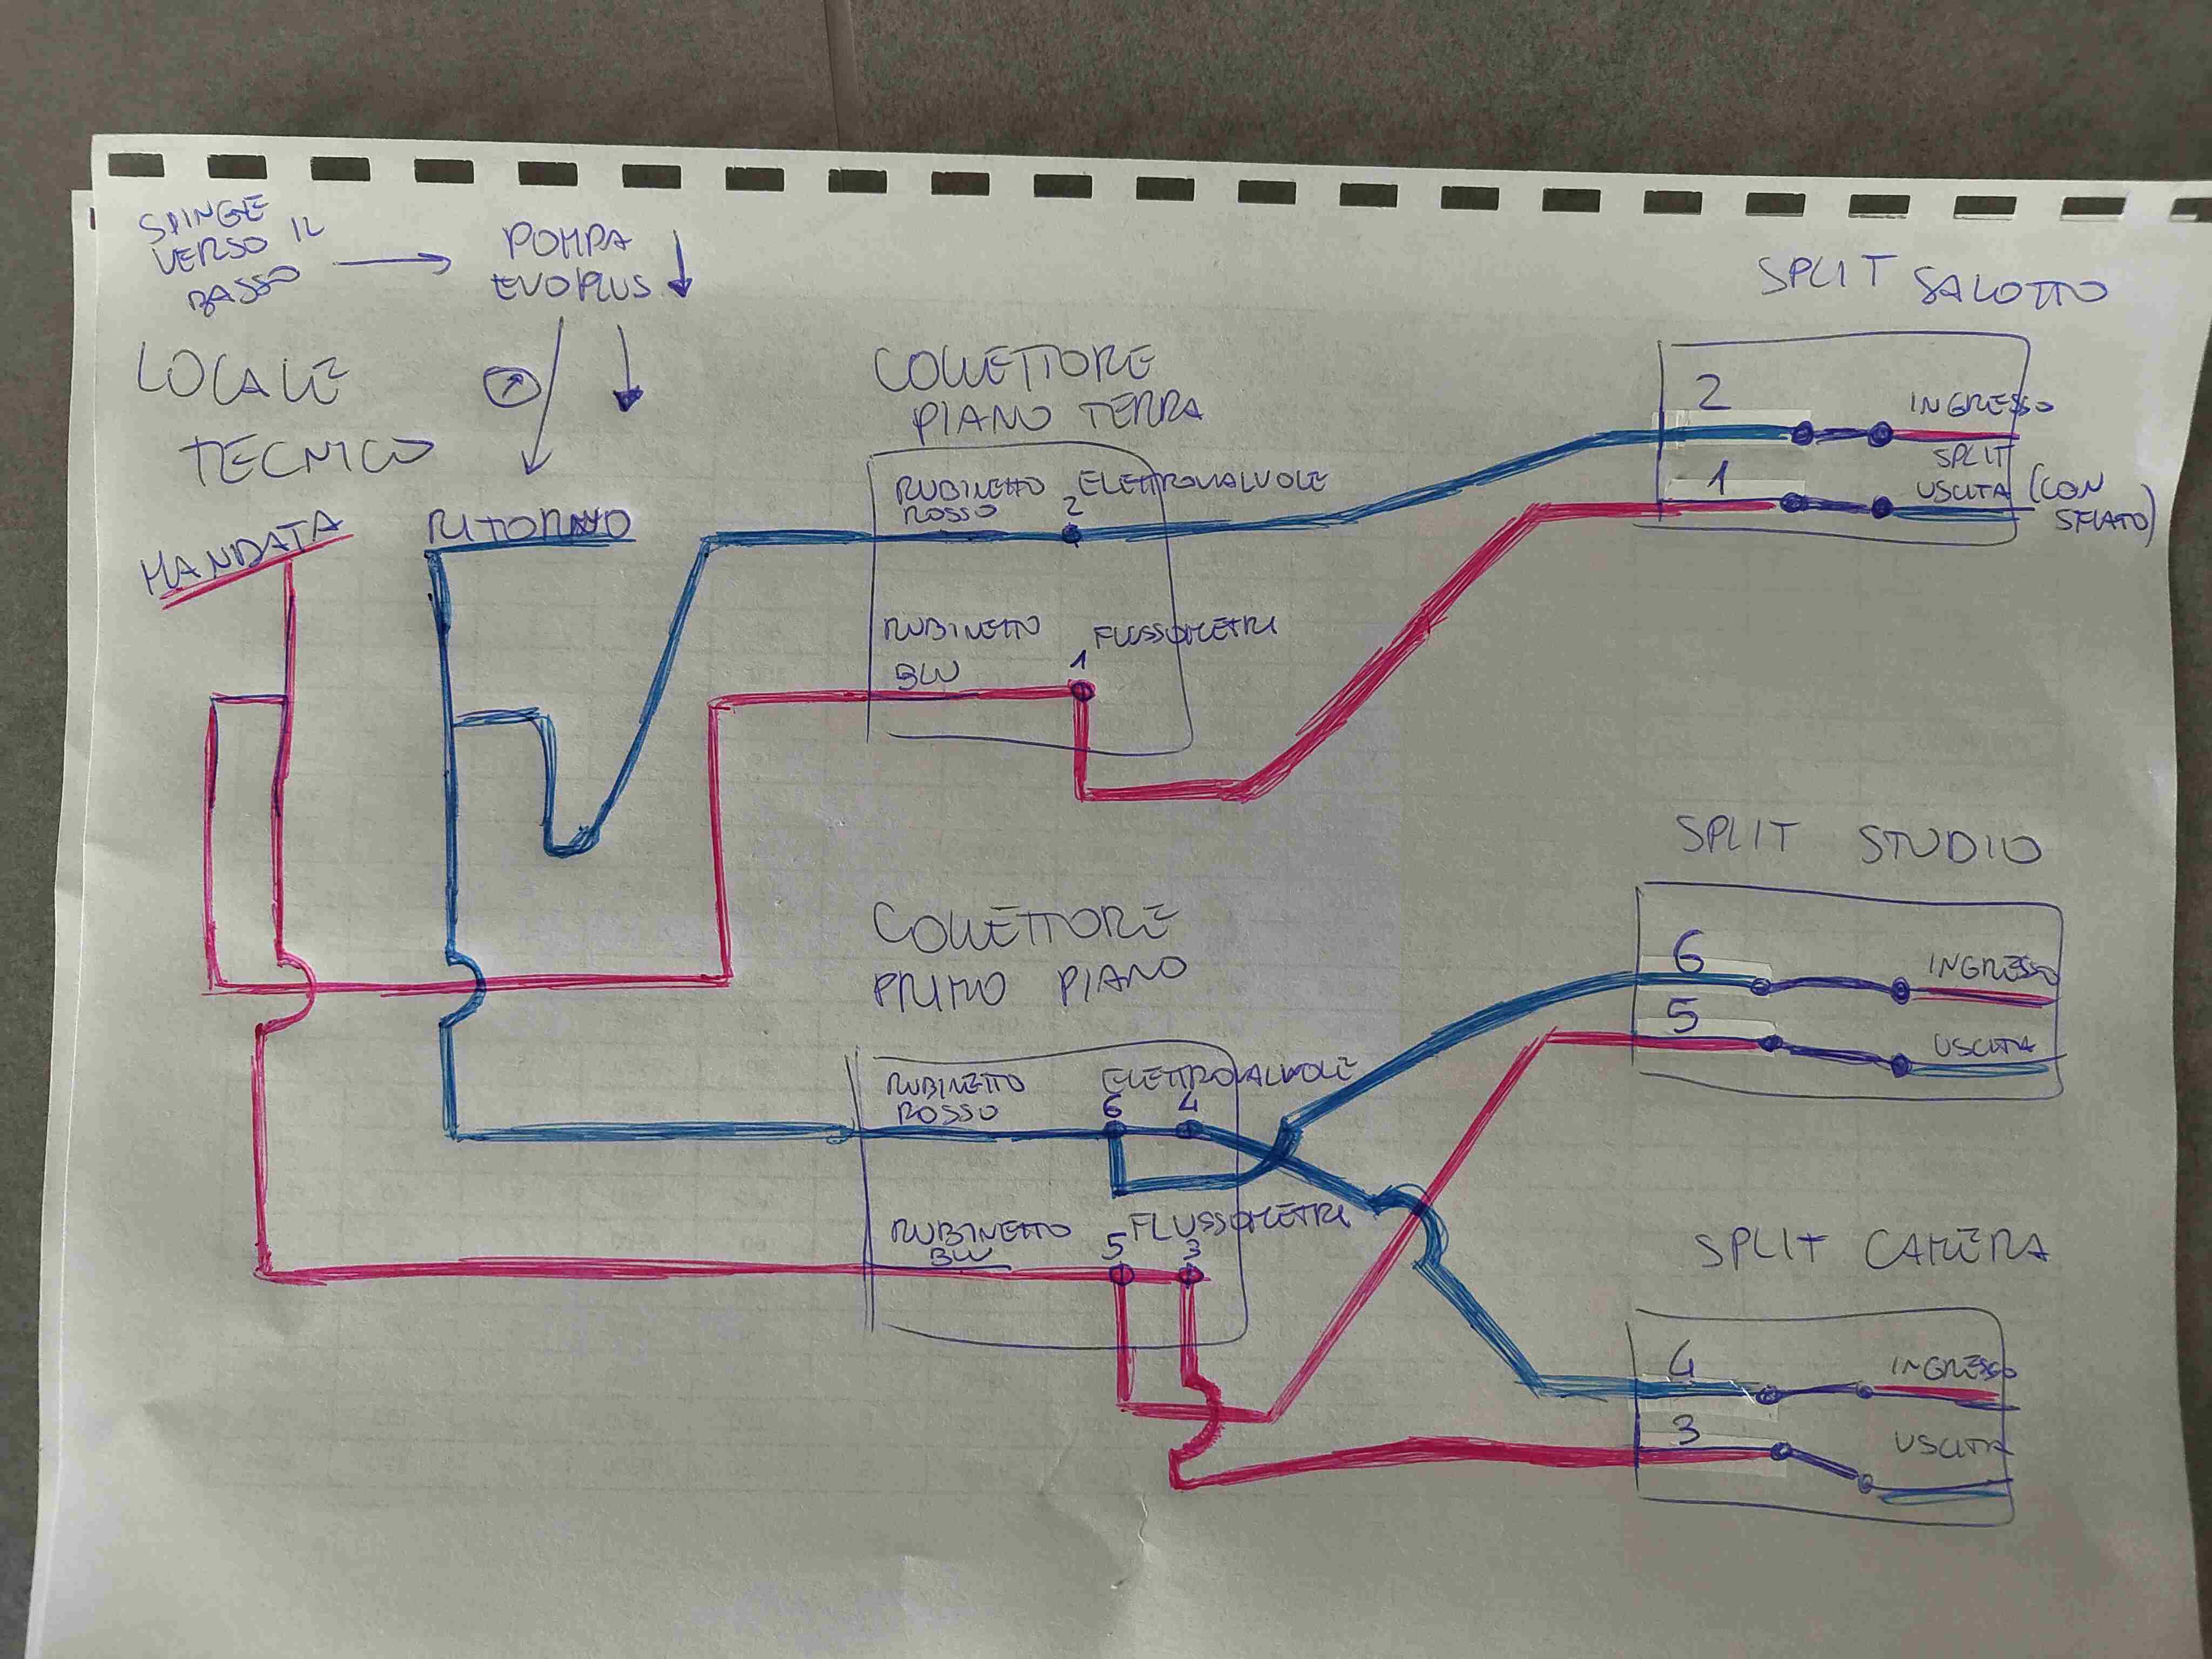 SPINGE
VERSO IL
BASSO
POMPA
EVOPLUS
LOCALE
TECNICO
MANDATA
RITORNO
COLLETTORE
PIANO TERRA
RUBINETTO
ROSSO
2
ELETTROVALVOLE
RUBINETTO
BLU
1
FLUSSOMETRI
SPLIT SALOTTO
2
INGRESSO
SPLIT
1
USCITA (CON
SFIATO)
COLLETTORE
PRIMO PIANO
RUBINETTO
ROSSO
ELETTROVALVOLE
6 4
RUBINETTO
BLU
FLUSSOMETRI
5 3
SPLIT STUDIO
6
INGRESSO
5
USCITA
SPLIT CAMERA
4
INGRESSO
3
USCITA